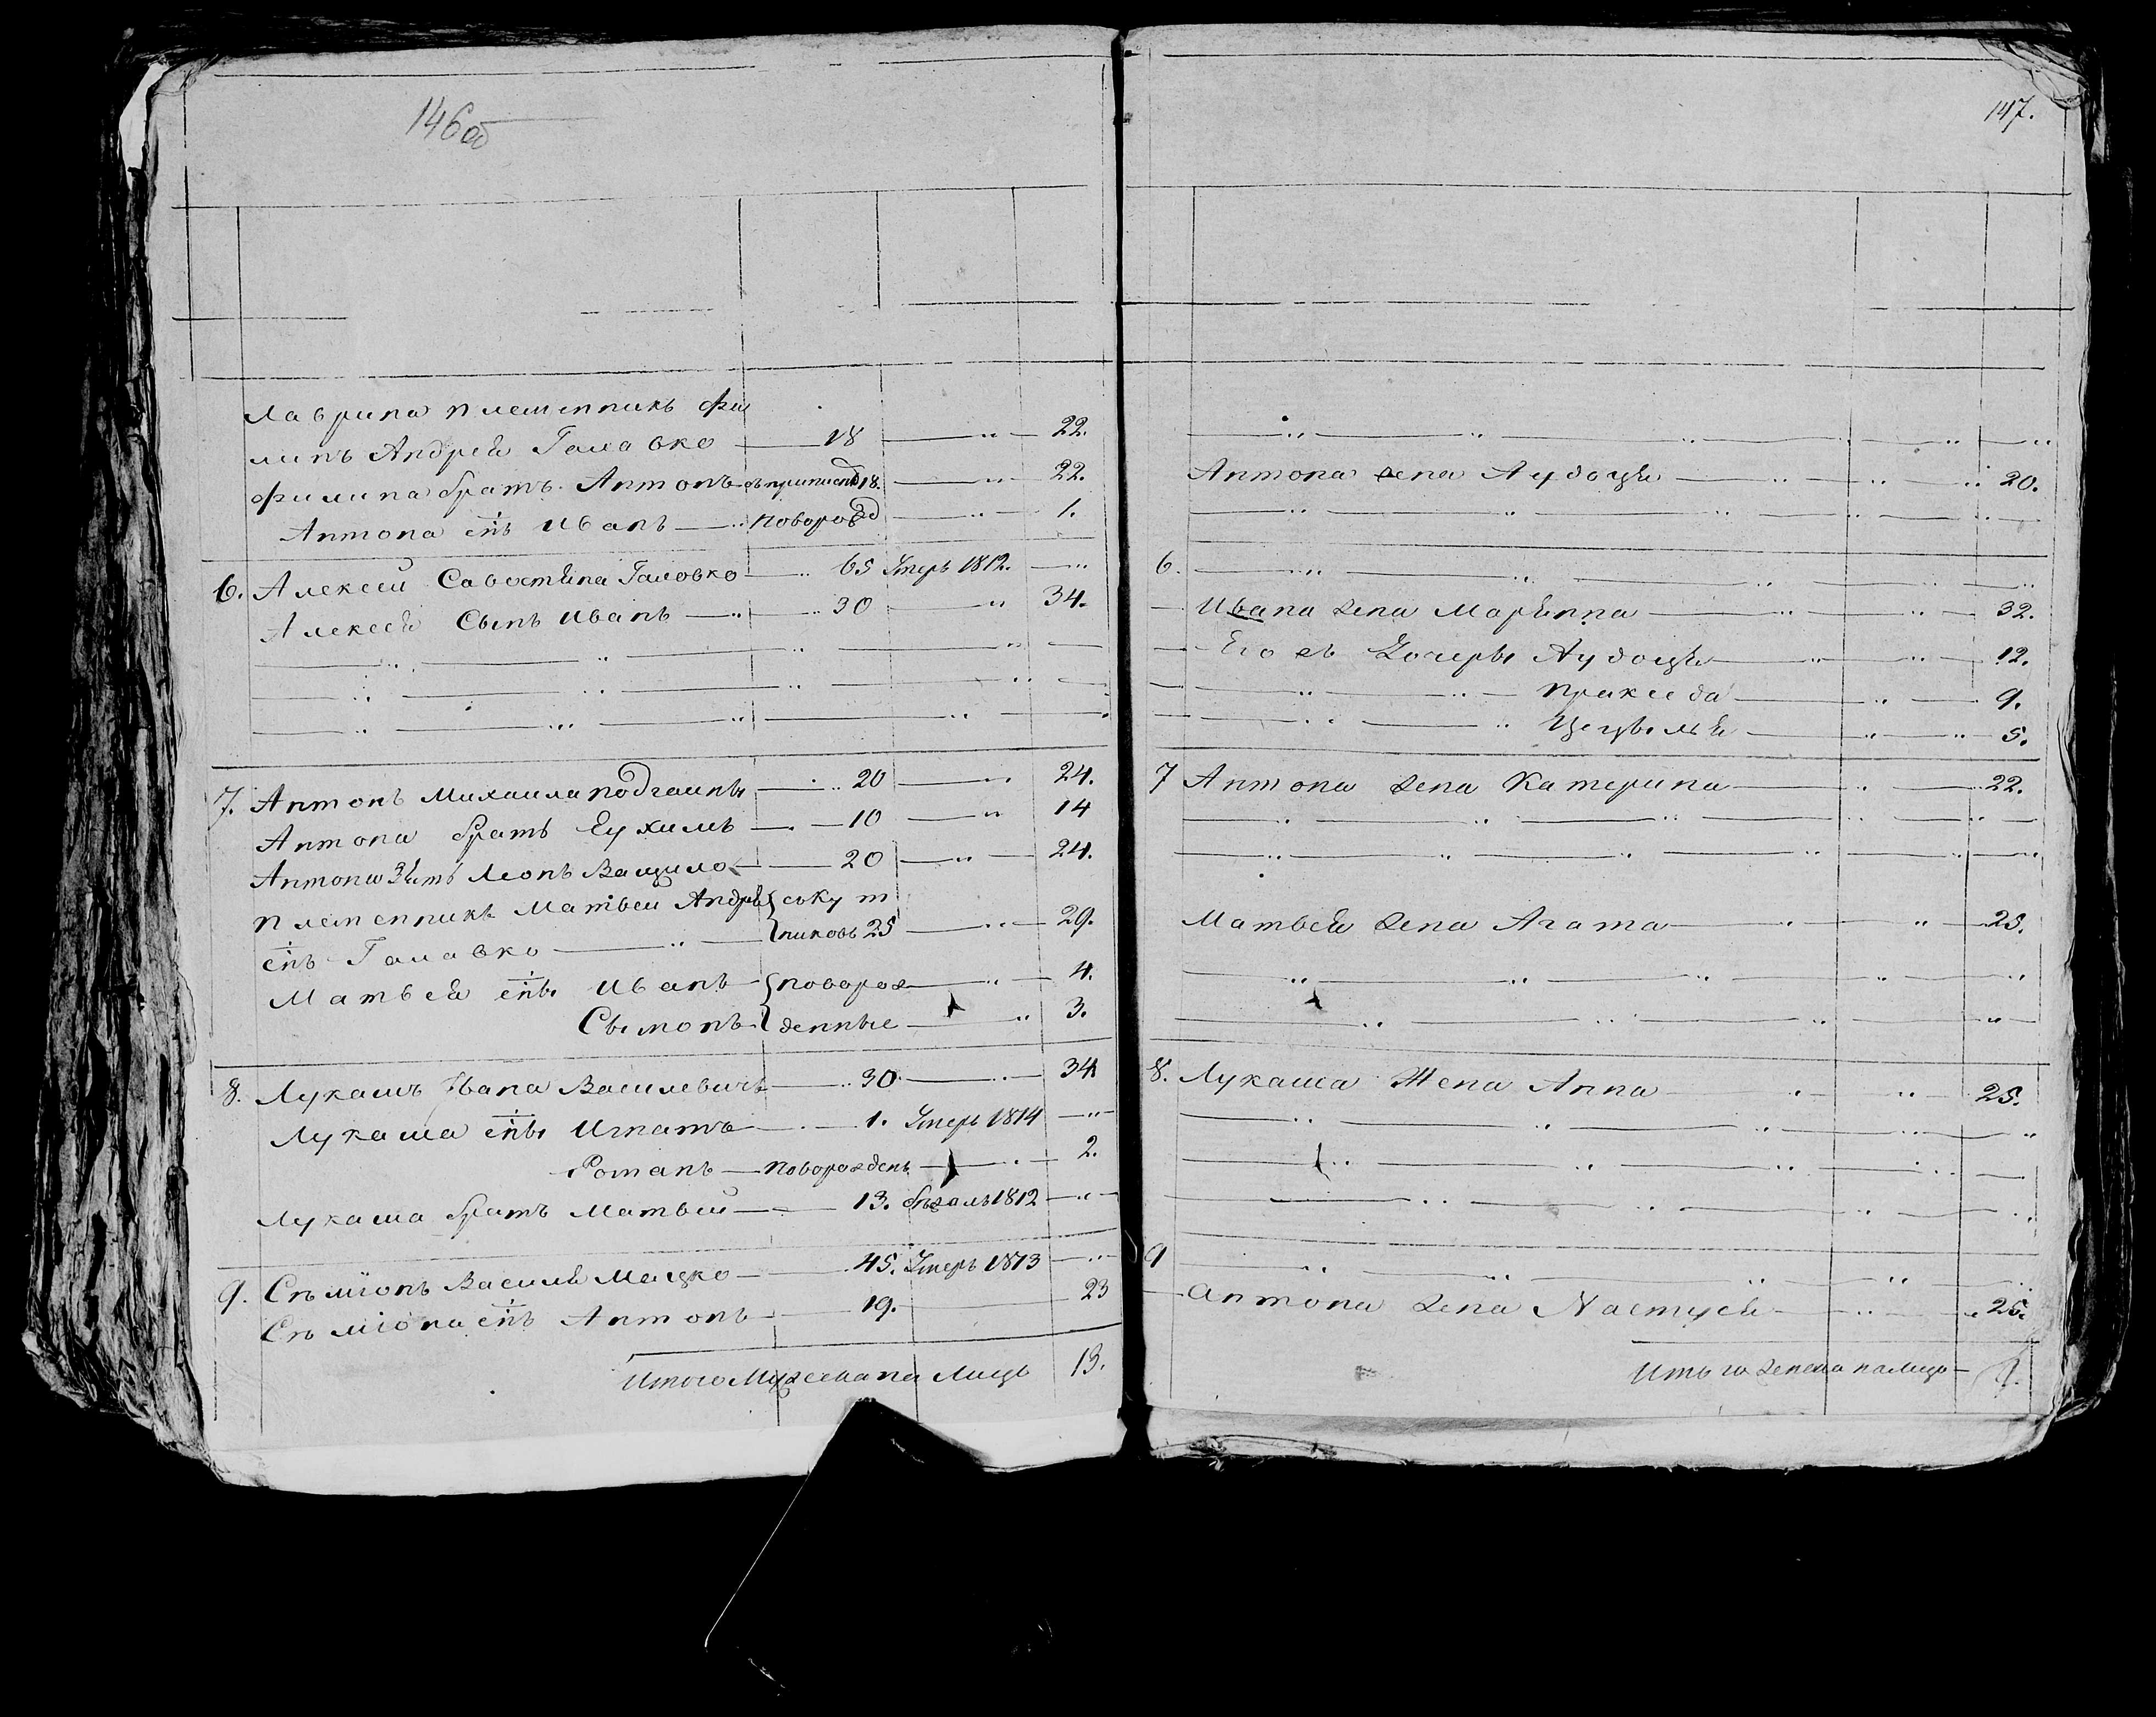 146об
Лаврина племенникъ Фи
липъ Андрея Галавко 18 22.
Филипа братъ Антонъ 18. 22.
Антона снъ Иванъ новорож 1.
6. Алексей Савостяна Галовко 65 Умеръ 1812.
Алексея Сынъ Иванъ 30 34.
7. Антонъ Михаила 20 24.
Антона братъ Еухимъ 10 14
Антона Зять Леонъ 20 24.
племенникъ Матвей Андрея
снъ Галавко 25 29.
Матвея сны Иванъ новорож 4.
Сымонъ денные 3.
8. Лукашъ Ивана Василевичъ 30 34
Лукаша сны Игнатъ 1. Умеръ 1814
Романъ новорожденъ 2.
Лукаша братъ Матвей 13. бежалъ 1812
9. Сымонъ Василя Мацко 45. Умеръ 1813
Сымона снъ Антонъ 19. 23
Итого Мужеска па Лицо 13.
147.
Антона жена Аудоця 20.
6.
Ивана жена Маряна 32.
Его жъ Дочеры Аудоця 12.
Праксeда 9.
Цецылия 5.
7 Антона жена Катерина 22.
Матвея жена Агата 25.
8. Лукаша Жена Анна 25.
9
Антона жена Настуся 25.
Итого женска па Лицо 9.